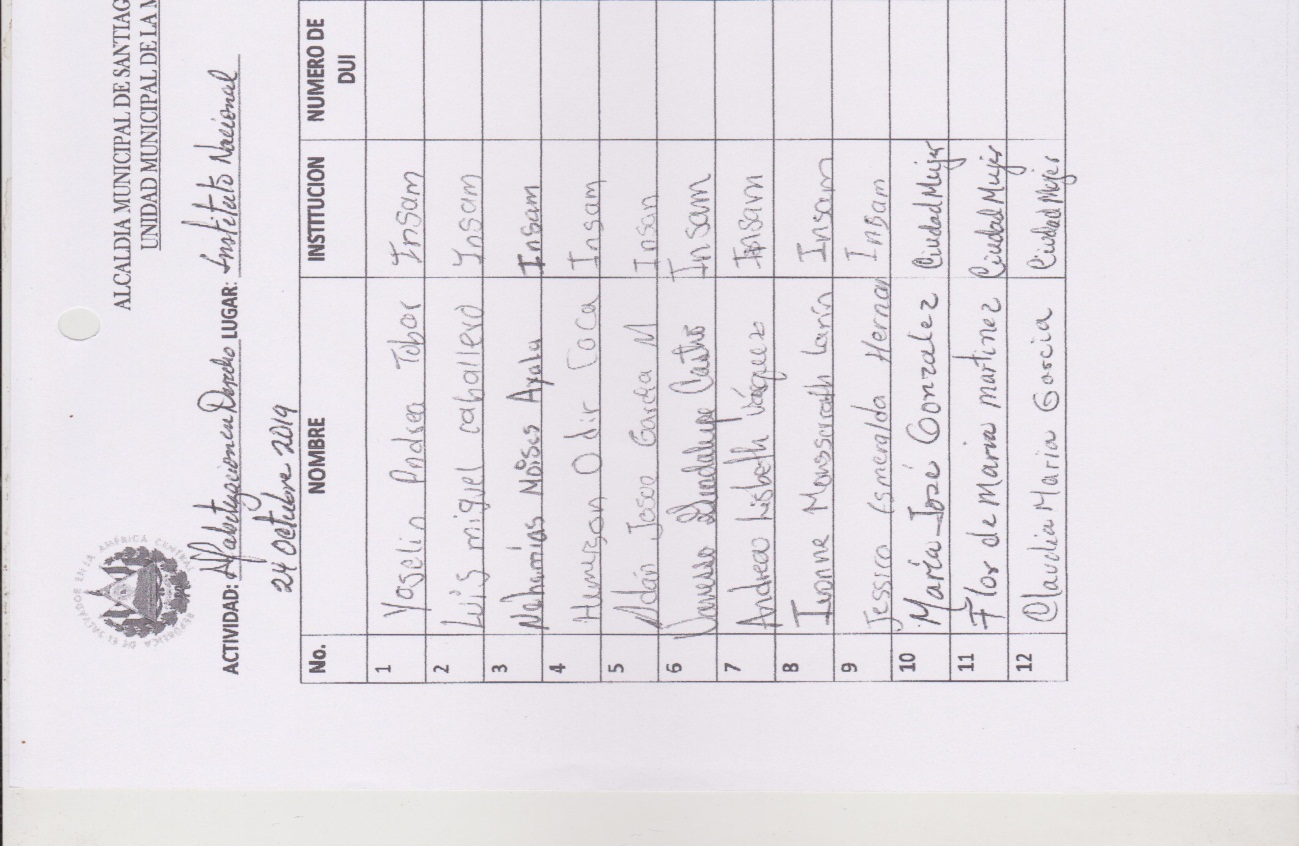 ALCALDIA MUNICIPAL DE SANTIAG
UNIDAD MUNICIPAL DE LA M
ACTIVIDAD: Alfabetizacion en Derecho LUGAR: Instituto Nacional
24 octubre 2019
No. NOMBRE INSTITUCION NUMERO DE DUI
1 Yoselin Andrea Tobar Insam
2 Luis miguel caballero Insam
3 Nehemías Moises Ayala Insam
4 Hemerson Odir Coca Insam
5 Adán Josoe García M Insan
6 Vanessa Guadalupe Castro Insam
7 Andrea Lisbeth Vásquez Insam
8 Ivonne Monssarath Larín Insam
9 Jessica Esmeralda Hernan Insam
10 María José Gonzalez Ciudad Mujer
11 Flor de Maria martinez Ciudad Mujer
12 Claudia Maria Garcia Ciudad Mujer